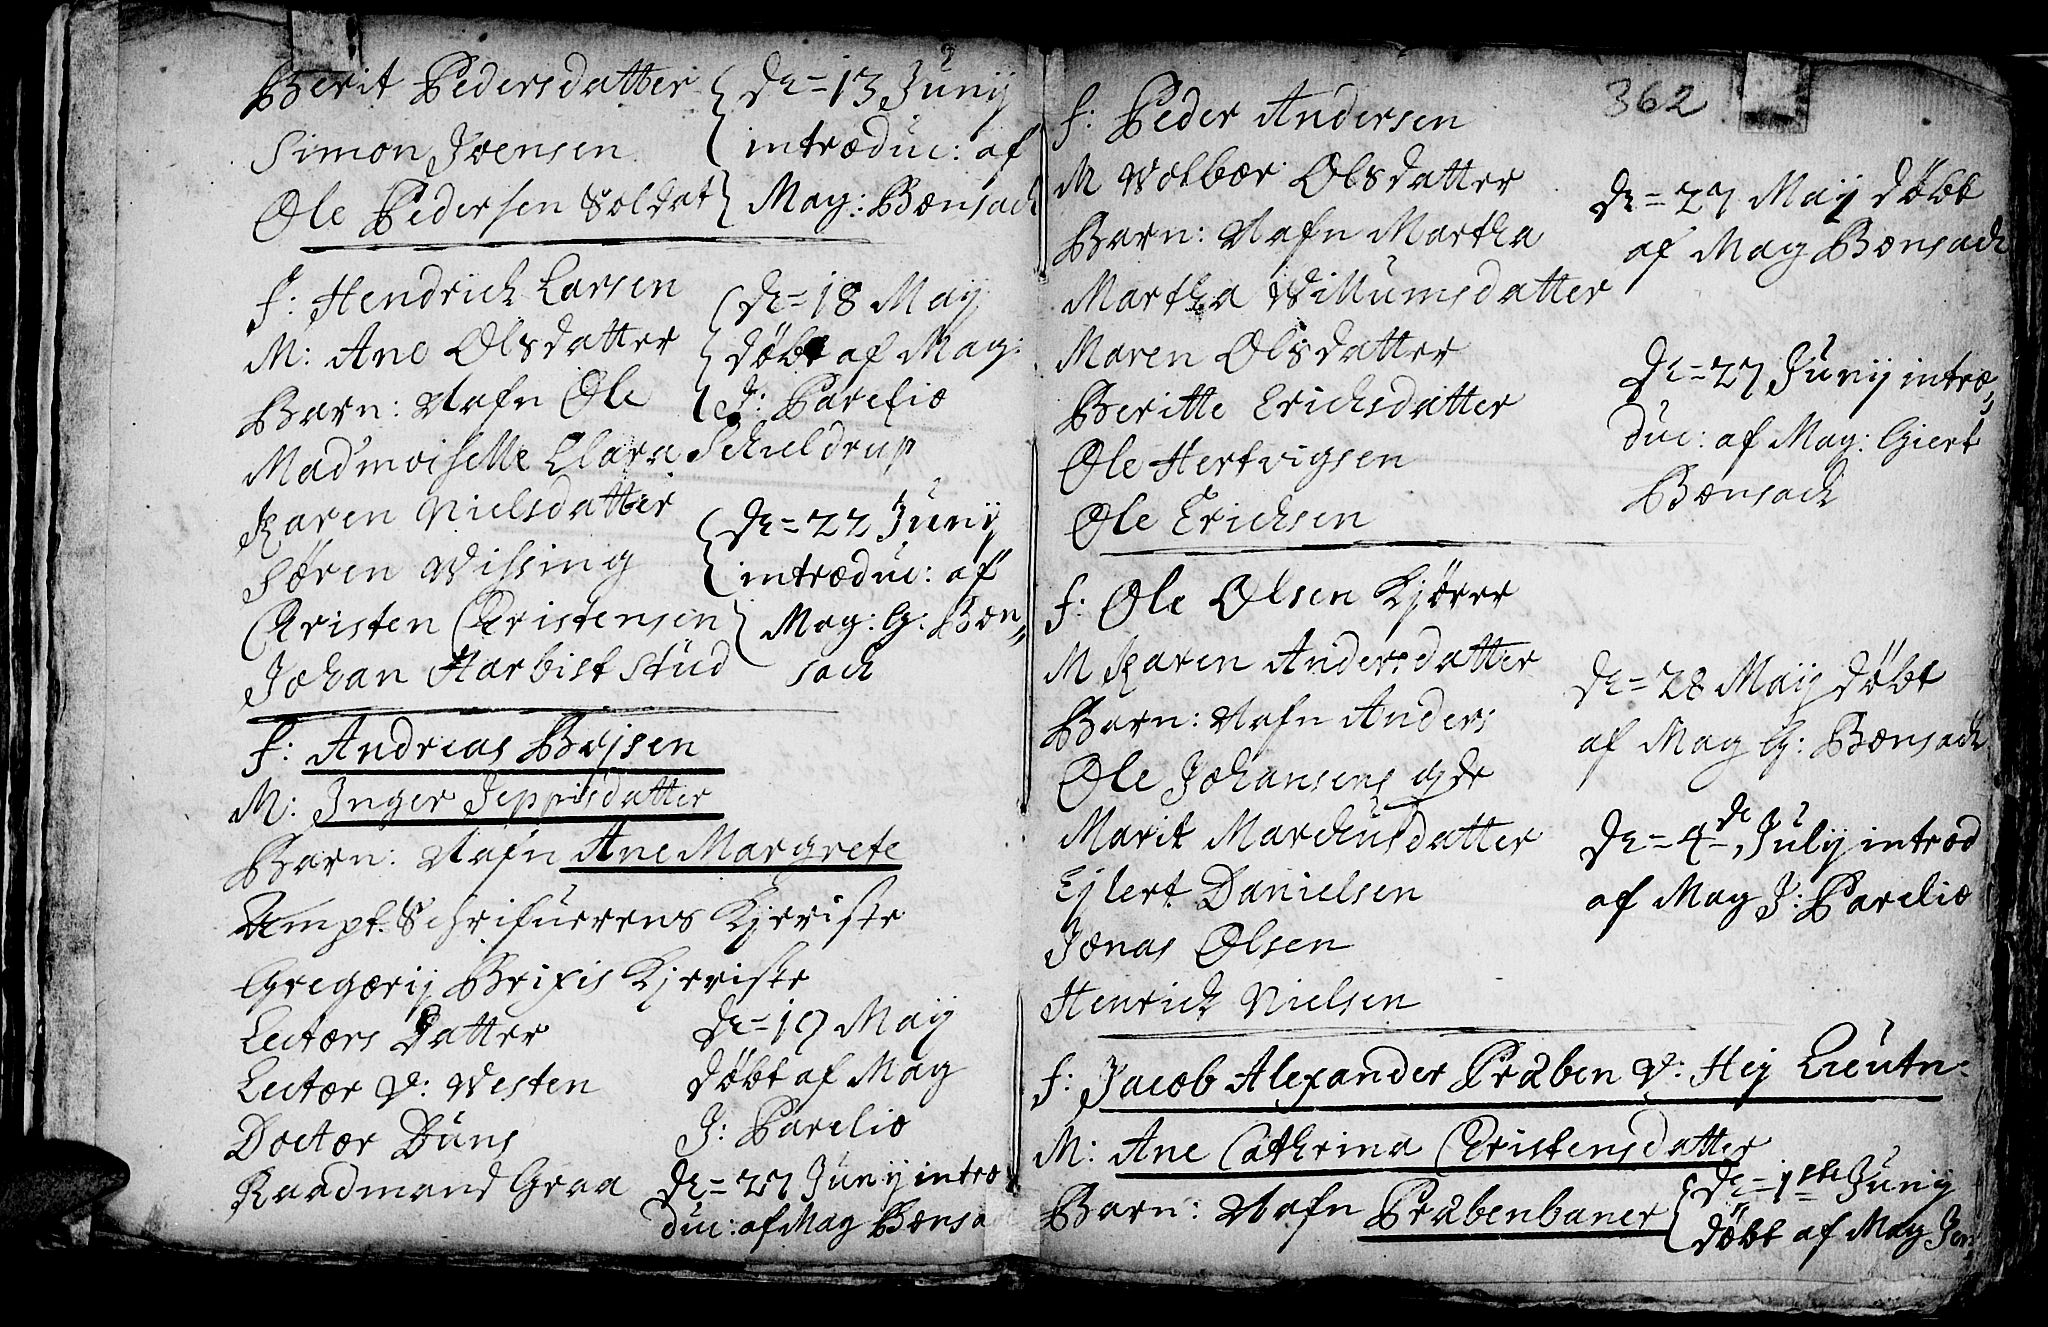 Berit Pedersdatter
Simon Joensen
Ole Pedersen Soldat
de = 13 Junij
introduc: af
Mag: Bonsach
f: Hendrich Larsen
M: Ane Olsdatter
Barn: Nafn Ole
Madmoiselle Clara Schieldrup
Karen Nielsdatter
Søren Wissing
Christen Christensen
Johan Harbist Stud
de = 18 Maij
døbt af Mag:
J: Parelio
de = 22 Junij
introduc: af
Mag: G: Bon„
sach
f: Andreas Bejsen
M: Inger Jeppisdatter
Barn: Nafn Ane Margrete
Ampt Schrifuerens Kjeriste
Gregorij Brixis Kjeriste
Lectors Datter
Lector V: Westen
Doctor Duns
Raadmand Graa
de = 19 Maij
døbt af Mag
J: Parelio
de = 27 Junij intro
duc: af Mag Bonsa
362
f: Peder Andersen
M Wolbor Olsdatter
Barn: Nafn Martha
Martha Willumsdatter
Maren Olsdatter
Beritte Erichsdatter
Ole Hertvigsen
Ole Erichsen
de = 27 Maij døbt
af Mag Bonsach
de = 27 Junij intro„
duc: af Mag: Giert
Bonsach
f: Ole Olsen Kjører
M Karen Andersdatter
Barn: Nafn Anders
Ole Johansens
Marit Marchusdatter
Ejlert Danielsen
Jonas Olsen
Henrich Nielsen
de = 28 Maij døbt
af Mag G: Bonsach
de = 4de Julij introd
af Mag J: Parelio
f: Jacob Alexander Pråben V: Hej Lieutn=
M: Ane Cathrina Christensdatter
Barn: Nafn Pråbenbaner
de = 1ste Junij
døbt af Mag Jen